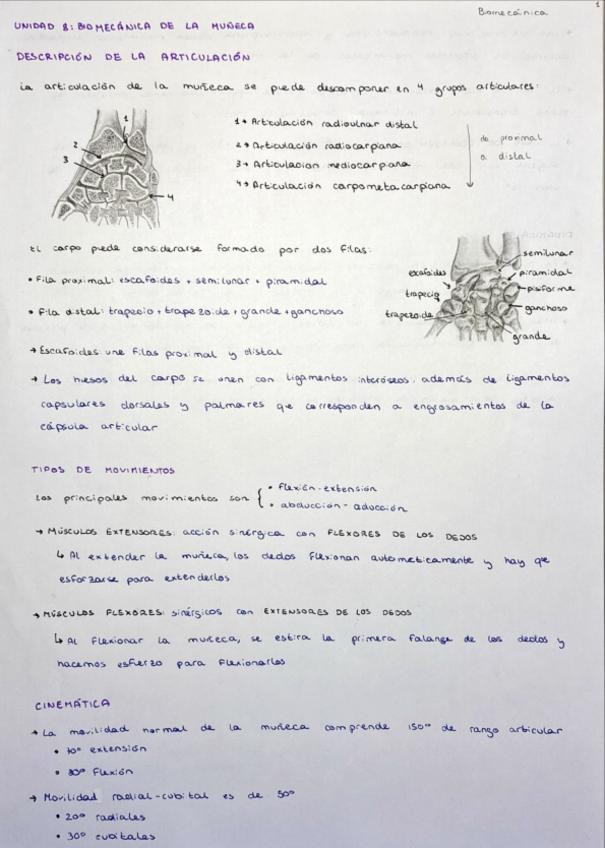 Biomecánica
1
UNIDAD 8: BIOMECÁNICA DE LA MUÑECA
DESCRIPCIÓN DE LA ARTICULACIÓN
La articulación de la muñeca se puede descomponer en 4 grupos articulares:
1
2
3
4
1→ Articulación radioulnar distal
2→ Articulación radiocarpiana
3→ Articulacion mediocarpiana
4→ Articulación carpometacarpiana
de proximal
a distal
El carpo puede considerarse formado por dos filas:
• Fila proximal: escafoides + semilunar + piramidal
• Fila distal: trapecio + trapezoide + grande + ganchoso
semilunar
escafoides
piramidal
pisiforme
trapecio
ganchoso
trapezoide
grande
→ Escafoides: une filas proximal y distal
→ Los huesos del carpo se unen con ligamentos interóseos, además de ligamentos
capsulares dorsales y palmares que corresponden a engrosamientos de la
cápsula articular
TIPOS DE MOVIMIENTOS
Los principales movimientos son { • flexión-extensión
• abducción - aducción
→ MÚSCULOS EXTENSORES: acción sinérgica con FLEXORES DE LOS DEDOS
↳ Al extender la muñeca, los dedos flexionan automáticamente y hay que
esforzarse para extenderlos
→ MÚSCULOS FLEXORES: sinérgicos con EXTENSORES DE LOS DEDOS
↳ Al flexionar la muñeca, se estira la primera falange de los dedos y
hacemos esfuerzo para flexionarlos
CINEMÁTICA
→ La movilidad normal de la muñeca comprende 150º de rango articular
• 70º extensión
• 80º flexión
→ Movilidad radial-cubital es de 50º
• 20º radiales
• 30º cubitales